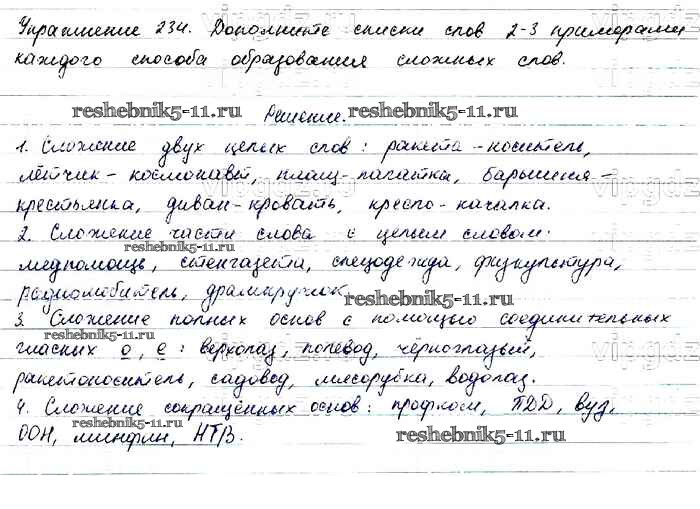 Упражнение 234. Дополните списки слов 2-3 примерами
каждого способа образования сложных слов.
reshebnik5-11.ru Решение. reshebnik5-11.ru
1. Сложение двух целых слов: ракета-носитель,
лётчик-космонавт, плащ-палатка, барышня-
крестьянка, диван-кровать, кресло-качалка.
2. Сложение части слова с целым словом:
reshebnik5-11.ru
медпомощь, стенгазета, спецодежда, физкультура,
радиолюбитель, драмкружок. reshebnik5-11.ru
3. Сложение полных основ с помощью соединительных
reshebnik5-11.ru
гласных о, е: верхолаз, полевод, черноглазый,
ракетоноситель, садовод, мясорубка, водолаз.
4. Сложение сокращённых основ: профком, ПДД, вуз,
ООН, минфин, НТВ. reshebnik5-11.ru